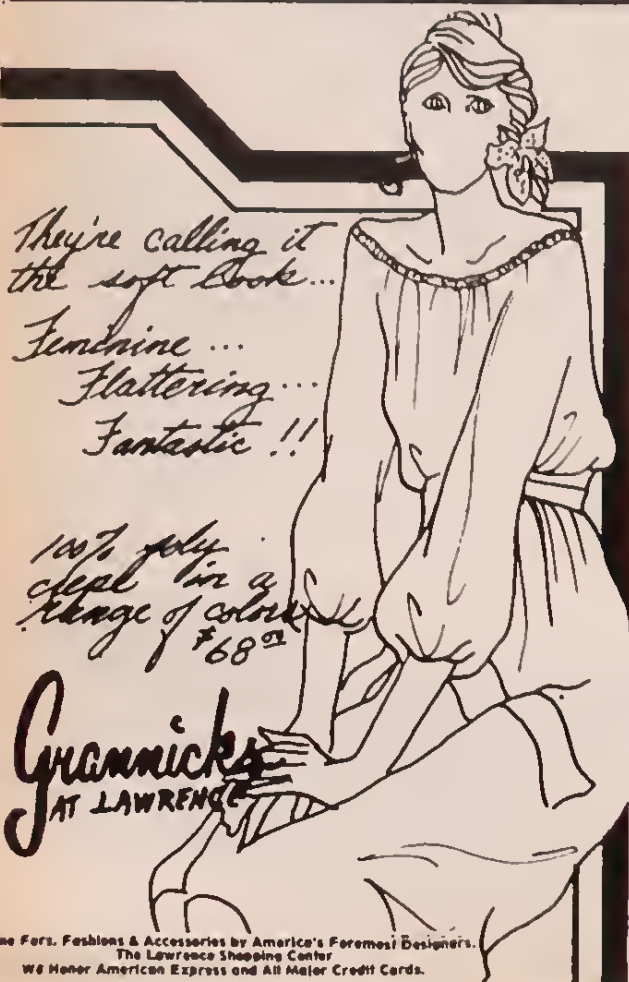 They're calling it
the soft look...
Feminine ...
Flattering ...
Fantastic !!
100% poly
crepe in a
range of colors
$68.00
Grannicks
AT LAWRENCE
ne Furs, Fashions & Accessories by America's Foremost Designers.
The Lawrence Shopping Center
We Honor American Express and All Major Credit Cards.